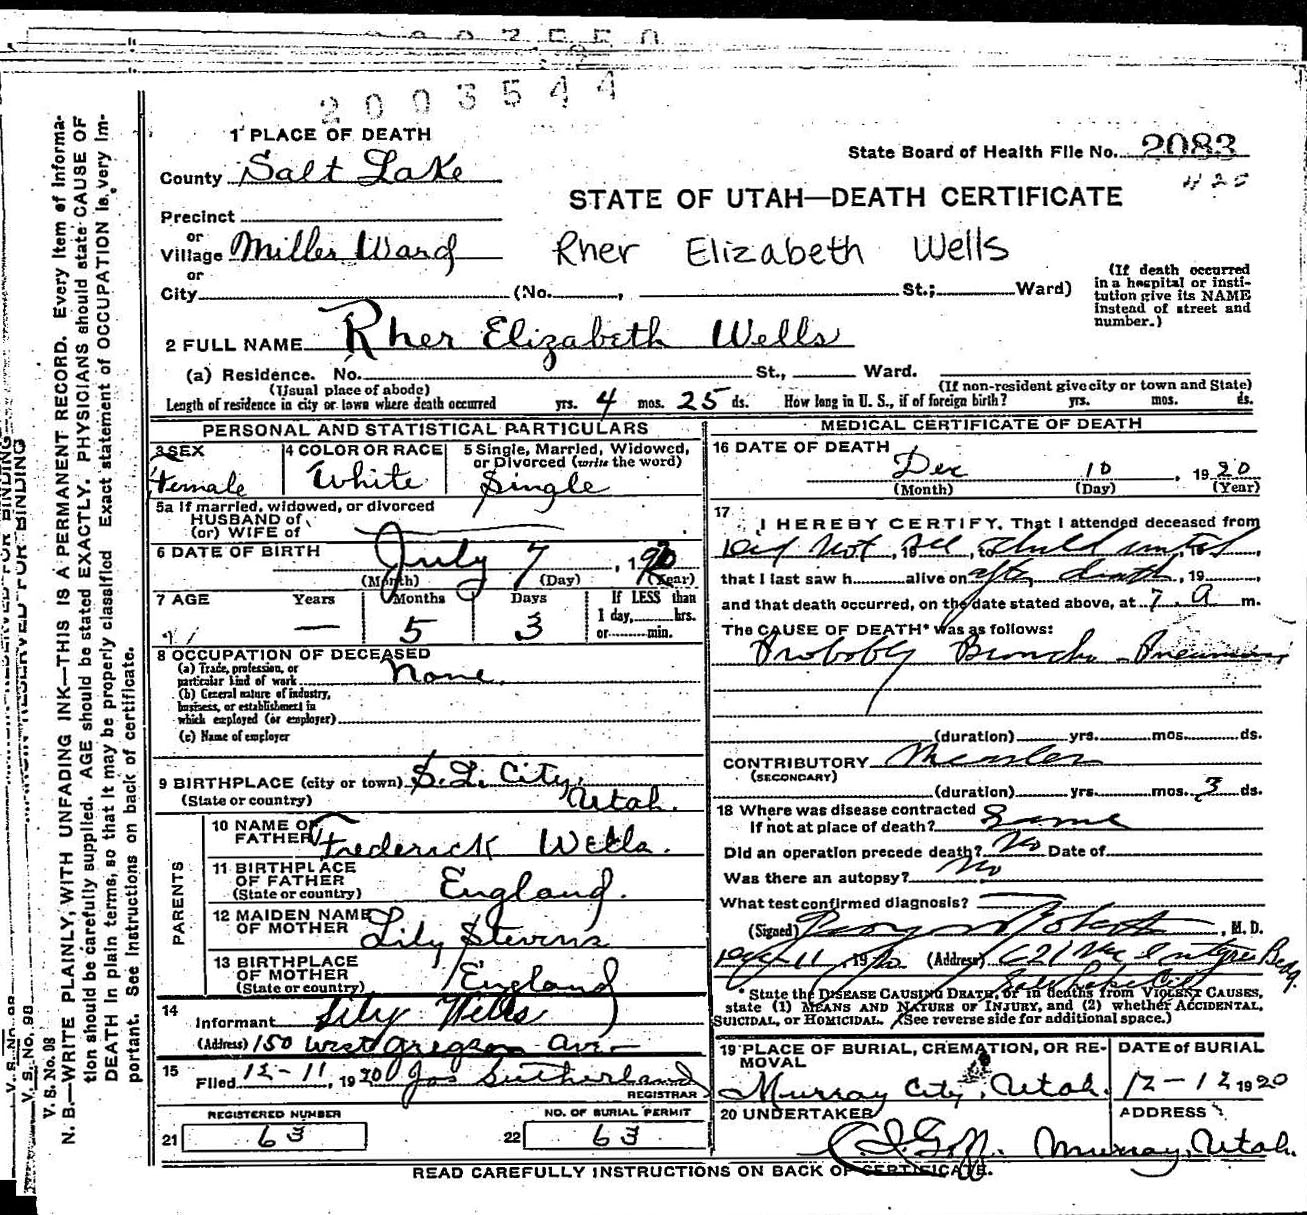 2003550
2003544
1 PLACE OF DEATH
County Salt Lake
State Board of Health File No. 2083
420
STATE OF UTAH—DEATH CERTIFICATE
Precinct
or
Village Miller Ward
Rher Elizabeth Wells
or
City (No. , St.; Ward)
(If death occurred in a hospital or insti-
tution give its NAME
instead of street and
number.)
2 FULL NAME Rher Elizabeth Wells
(a) Residence. No. St., Ward.
(Usual place of abode) (If non-resident give city or town and State)
Length of residence in city or town where death occurred yrs. 4 mos. 25 ds. How long in U. S., if of foreign birth? yrs. mos. ds.
PERSONAL AND STATISTICAL PARTICULARS
3 SEX
Female
4 COLOR OR RACE
White
5 Single, Married, Widowed,
or Divorced (write the word)
Single
5a If married, widowed, or divorced
HUSBAND of
(or) WIFE of
6 DATE OF BIRTH July 7, 1920
(Month) (Day) (Year)
7 AGE Years Months Days If LESS than
1 day, hrs.
or min.
— 5 3
8 OCCUPATION OF DECEASED
(a) Trade, profession, or
particular kind of work None
(b) General nature of industry,
business, or establishment in
which employed (or employer)
(c) Name of employer
9 BIRTHPLACE (city or town) S. L. City,
(State or country) Utah.
PARENTS
10 NAME OF
FATHER Frederick Wells.
11 BIRTHPLACE
OF FATHER
(State or country) England.
12 MAIDEN NAME
OF MOTHER Lily Stevens
13 BIRTHPLACE
OF MOTHER
(State or country) England
14
Informant Lily Wells
(Address) 150 West Gregson Ave
15
Filed 12-11, 1920 Jas Sutherland
REGISTRAR
REGISTERED NUMBER
21 63
NO. OF BURIAL PERMIT
22 63
MEDICAL CERTIFICATE OF DEATH
16 DATE OF DEATH
Dec 10, 1920
(Month) (Day) (Year)
17
I HEREBY CERTIFY, That I attended deceased from
Did not, 19 see to child until, 19
that I last saw h alive on after death, 19
and that death occurred, on the date stated above, at 7 a m.
The CAUSE OF DEATH* was as follows:
Probably Broncho-Pneumonia
(duration) yrs. mos. ds.
CONTRIBUTORY Measles
(SECONDARY)
(duration) yrs. mos. 3 ds.
18 Where was disease contracted
If not at place of death? Same
Did an operation precede death? No Date of
Was there an autopsy? No
What test confirmed diagnosis?
(Signed) Roberts, M.D.
Dec 11, 1920 (Address) 621 McIntyre Bldg.
Salt Lake City
*State the DISEASE CAUSING DEATH, or in deaths from VIOLENT CAUSES,
state (1) MEANS AND NATURE OF INJURY, and (2) whether ACCIDENTAL,
SUICIDAL, or HOMICIDAL. (See reverse side for additional space.)
19 PLACE OF BURIAL, CREMATION, OR RE-
MOVAL
Murray City, Utah.
DATE OF BURIAL
12-12 1920
20 UNDERTAKER
Goff.
ADDRESS
Murray, Utah.
READ CAREFULLY INSTRUCTIONS ON BACK OF CERTIFICATE.
V. S. No. 98
MARGIN RESERVED FOR BINDING
V. S. No. 98
N. B.—WRITE PLAINLY, WITH UNFADING INK—THIS IS A PERMANENT RECORD. Every item of informa-
tion should be carefully supplied. AGE should be stated EXACTLY. PHYSICIANS should state CAUSE OF
DEATH in plain terms, so that it may be properly classified. Exact statement of OCCUPATION is very im-
portant. See instructions on back of certificate.